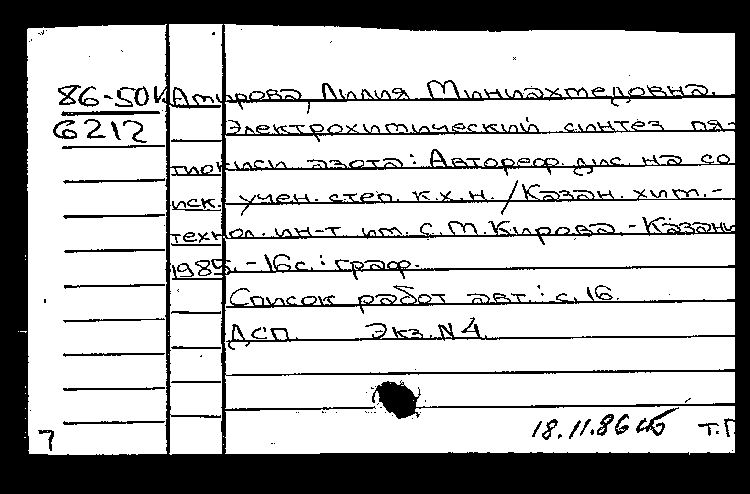 86-50К Амирова, Лилия Миниахмедовна.
6212 Электрохимический синтез пя-
тиокиси азота: Автореф. дис. на со
иск. учен. степ. к.х.н. / Казан. хим.-
технол. ин-т им. С.М. Кирова. - Казань
1985. - 16с.: граф.
Список работ авт.: с. 16.
ДСП. Экз. N4.
18.11.86
7 т.П